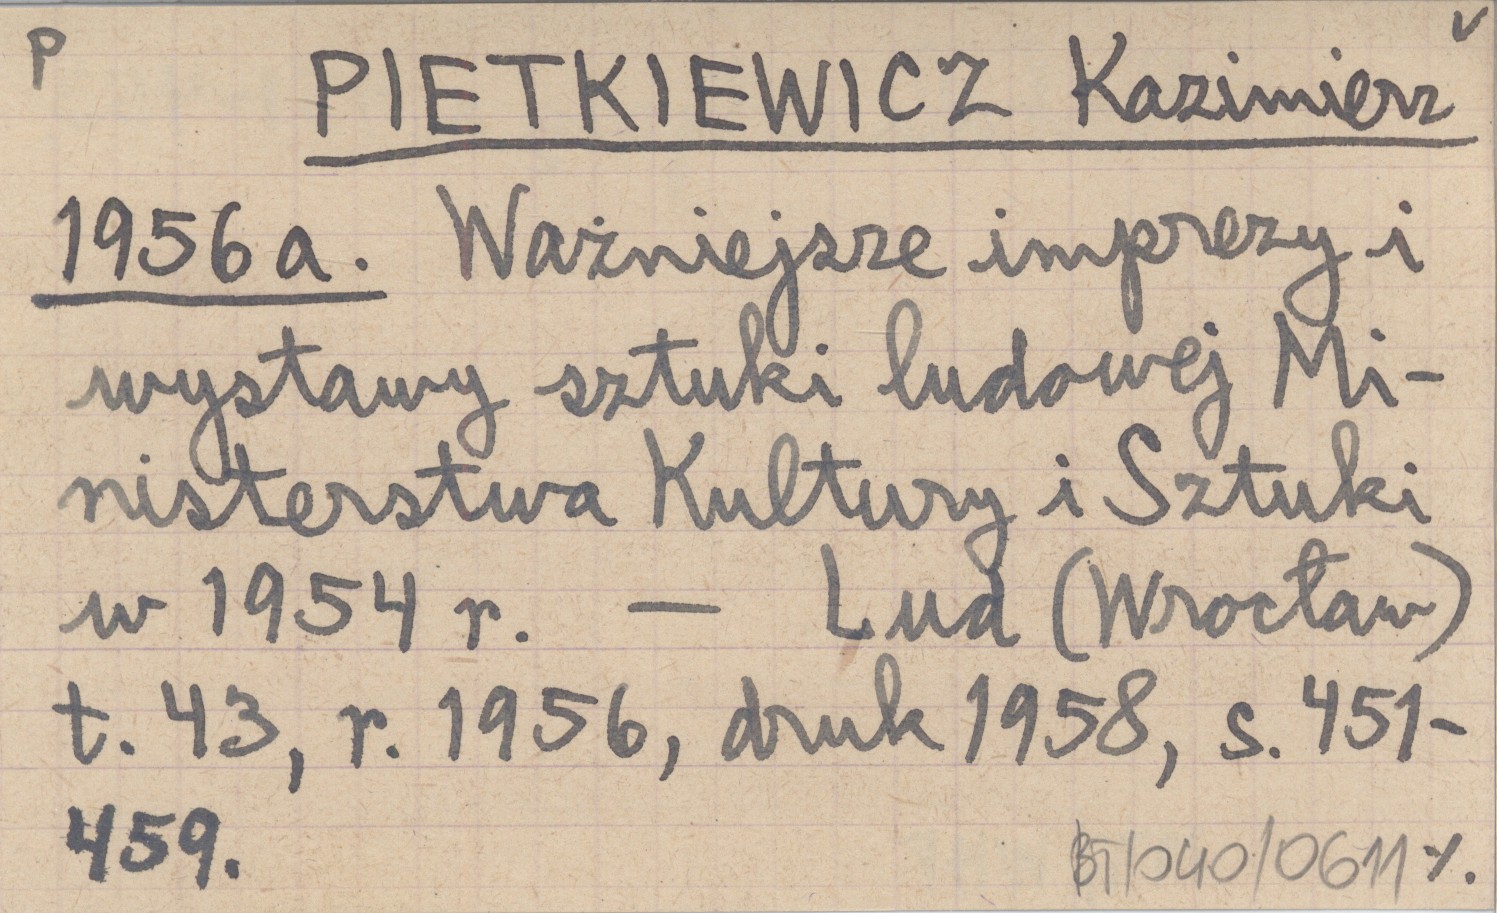 P
v
PIETKIEWICZ Kazimierz
1956 a. Ważniejsze imprezy i
wystawy sztuki ludowej Mi-
nisterstwa Kultury i Sztuki
w 1954 r. — Lud (Wrocław)
t. 43, r. 1956, druk 1958, s. 451-
459.
BT/040/0611 ٪.